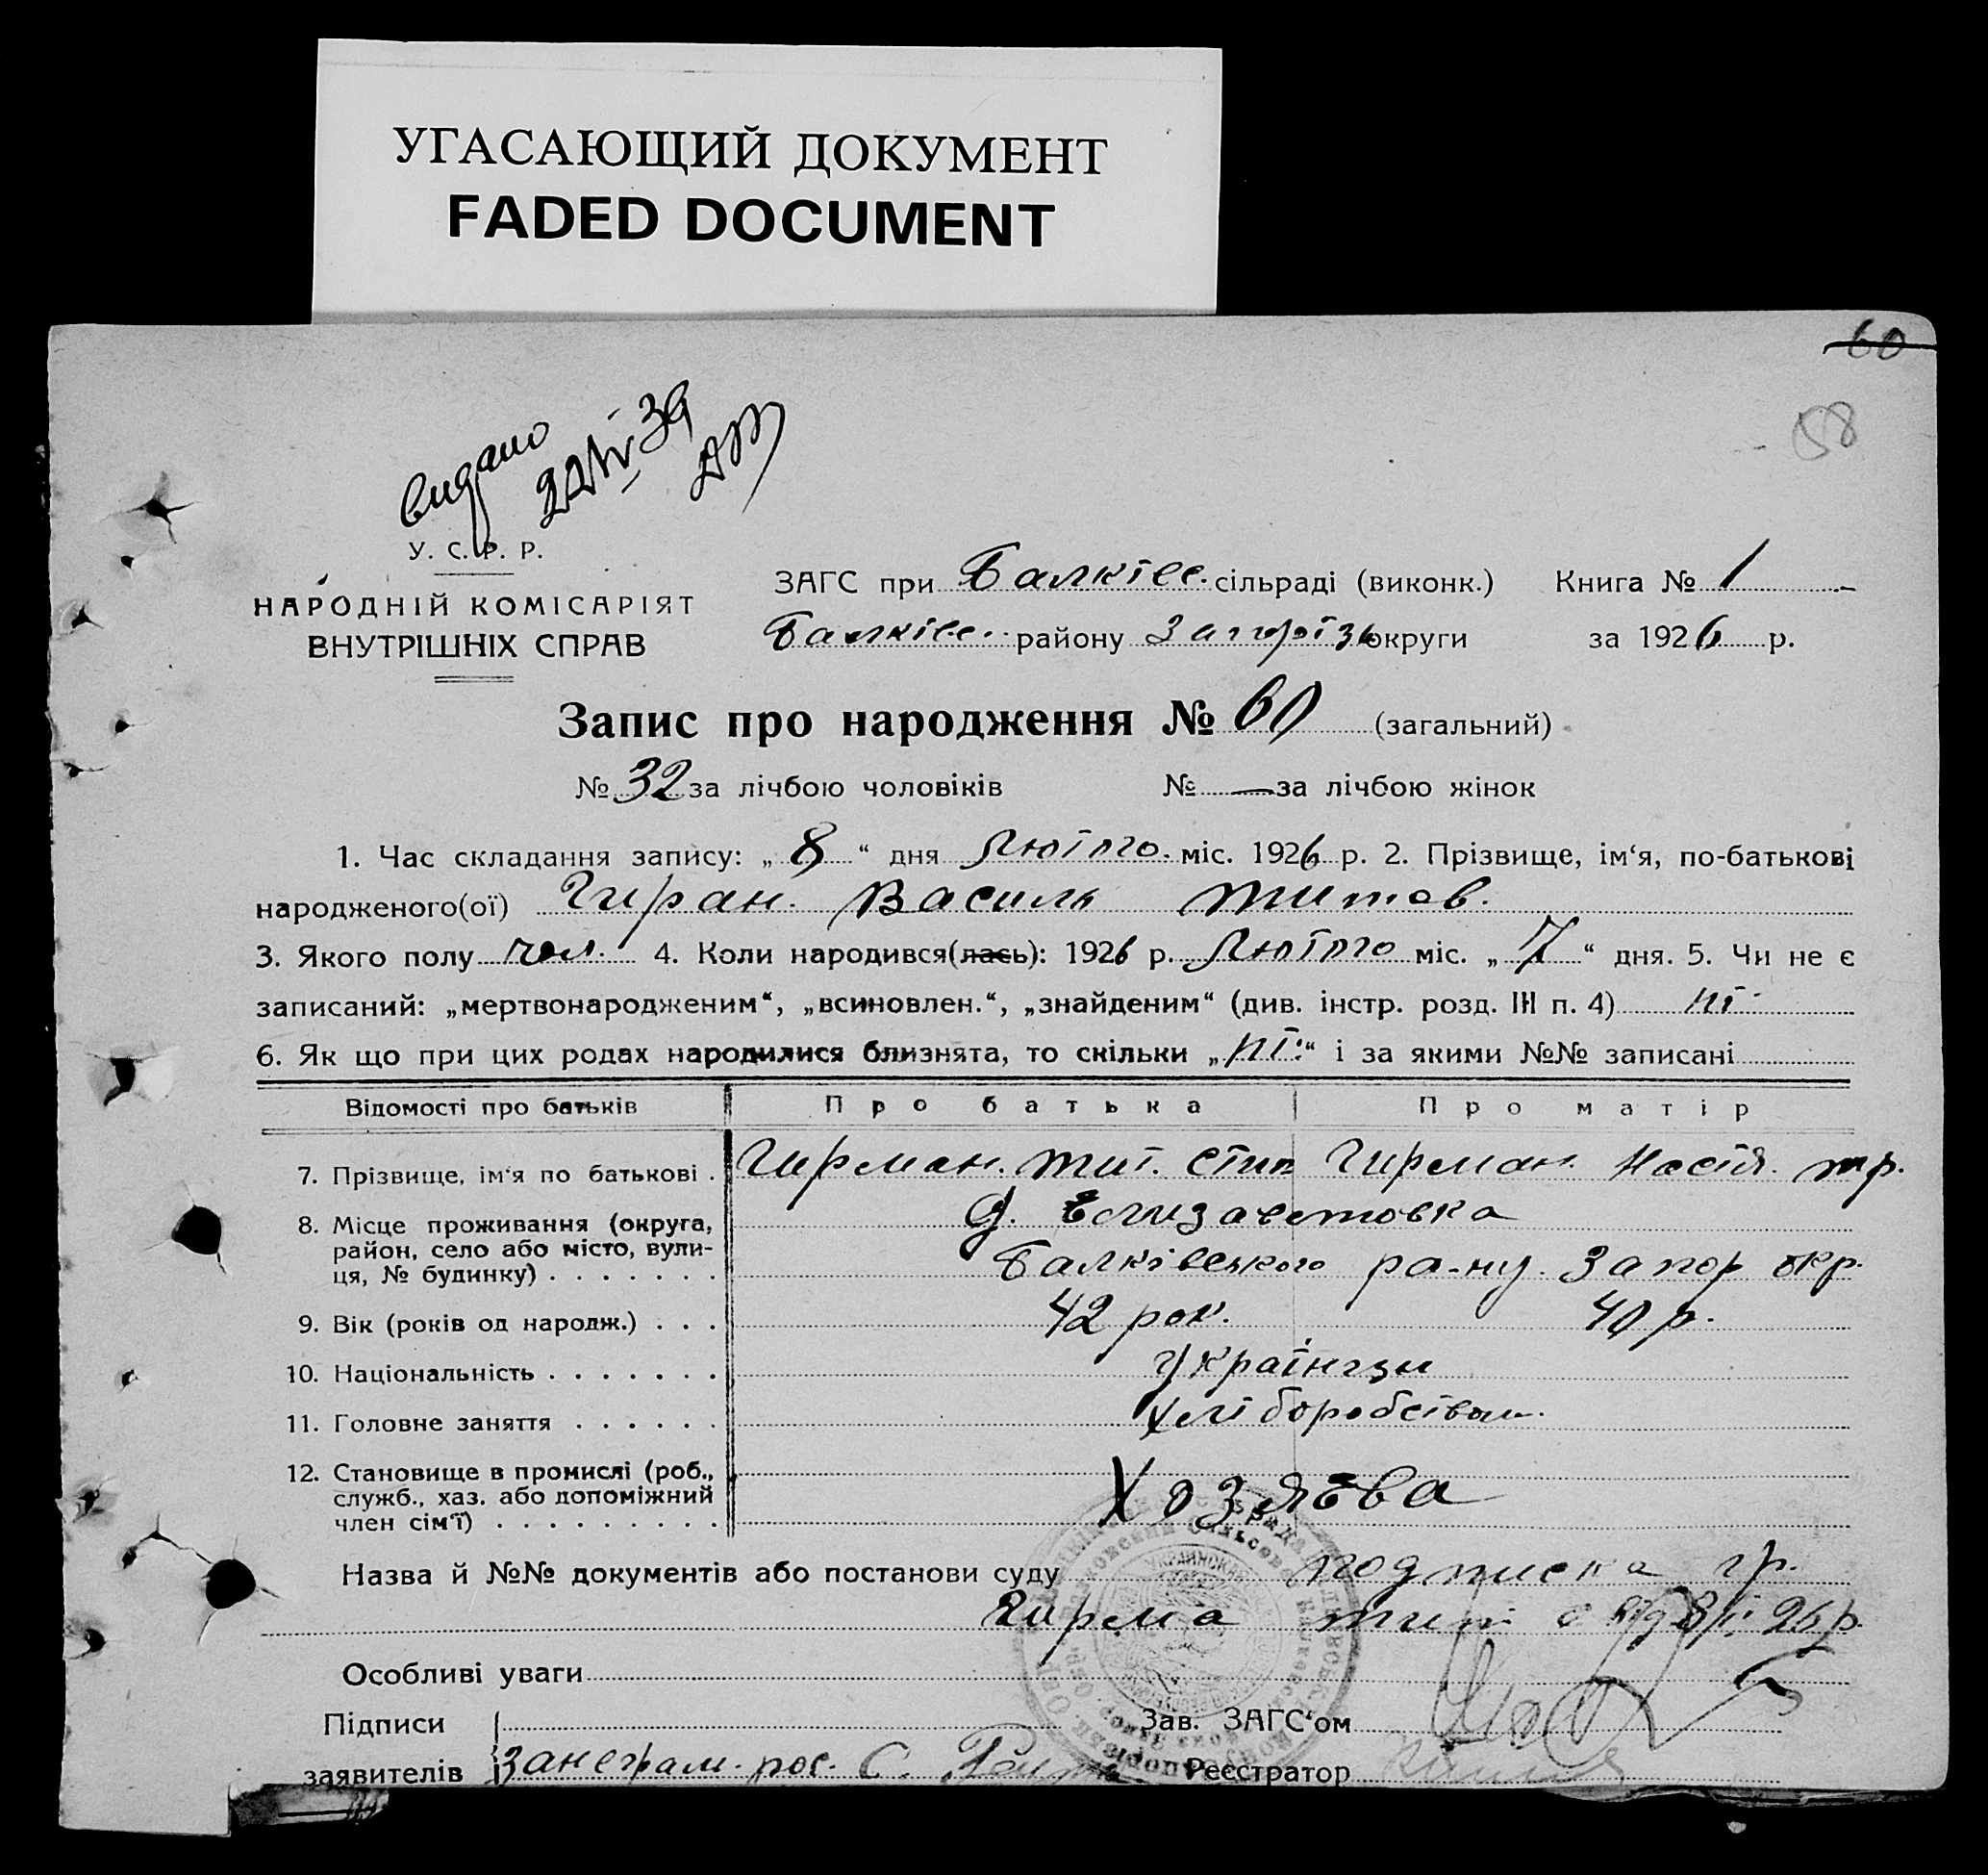 УГАСАЮЩИЙ ДОКУМЕНТ
FADED DOCUMENT
60
58
видано
У. С. Р. Р.
НАРОДНІЙ КОМІСАРІЯТ
ВНУТРІШНІХ СПРАВ
ЗАГС при Балківс. сільраді (виконк.) Книга № 1
Балківс. району Запорізь округи за 1926 р.
Запис про народження № 60 (загальний)
№ 32 за лічбою чоловіків № — за лічбою жінок
1. Час складання запису: „ 8 “ дня Лютого міс. 1926 р. 2. Прізвище, ім‘я, по-батькові
народженого(ої) Гирман. Василь Титов.
3. Якого полу чол. 4. Коли народився(лась): 1926 р. Лютого міс. „ 7 “ дня. 5. Чи не є
записаний: „мертвонародженим“, „всиновлен.“, „знайденим“ (див. інстр. розд. III п. 4) ні
6. Як що при цих родах народилися близнята, то скільки „ ні “ і за якими №№ записані
Відомості про батьків Про батька Про матір
7. Прізвище, ім‘я по батькові . Гирман. Тит. Стип Гирман. Настя. Тр.
8. Місце проживання (округа, район, село або місто, вулиця, № будинку) . . . . . . . д. Елизаветовка
Балківського ра-ну. Запор окр.
9. Вік (років од народж.) . . . 42 рок. 40 р.
10. Національність . . . . . . . Українци
11. Головне заняття . . . . . . Хліборобством.
12. Становище в промислі (роб., служб., хаз. або допоміжний член сім‘ї) . . . . . . . . . Хозяева
Назва й №№ документів або постанови суду подписка гр.
Гирма Тит 26 р.
Особливі уваги
Підписи Зав. ЗАГС‘ом
заявителів Реєстратор